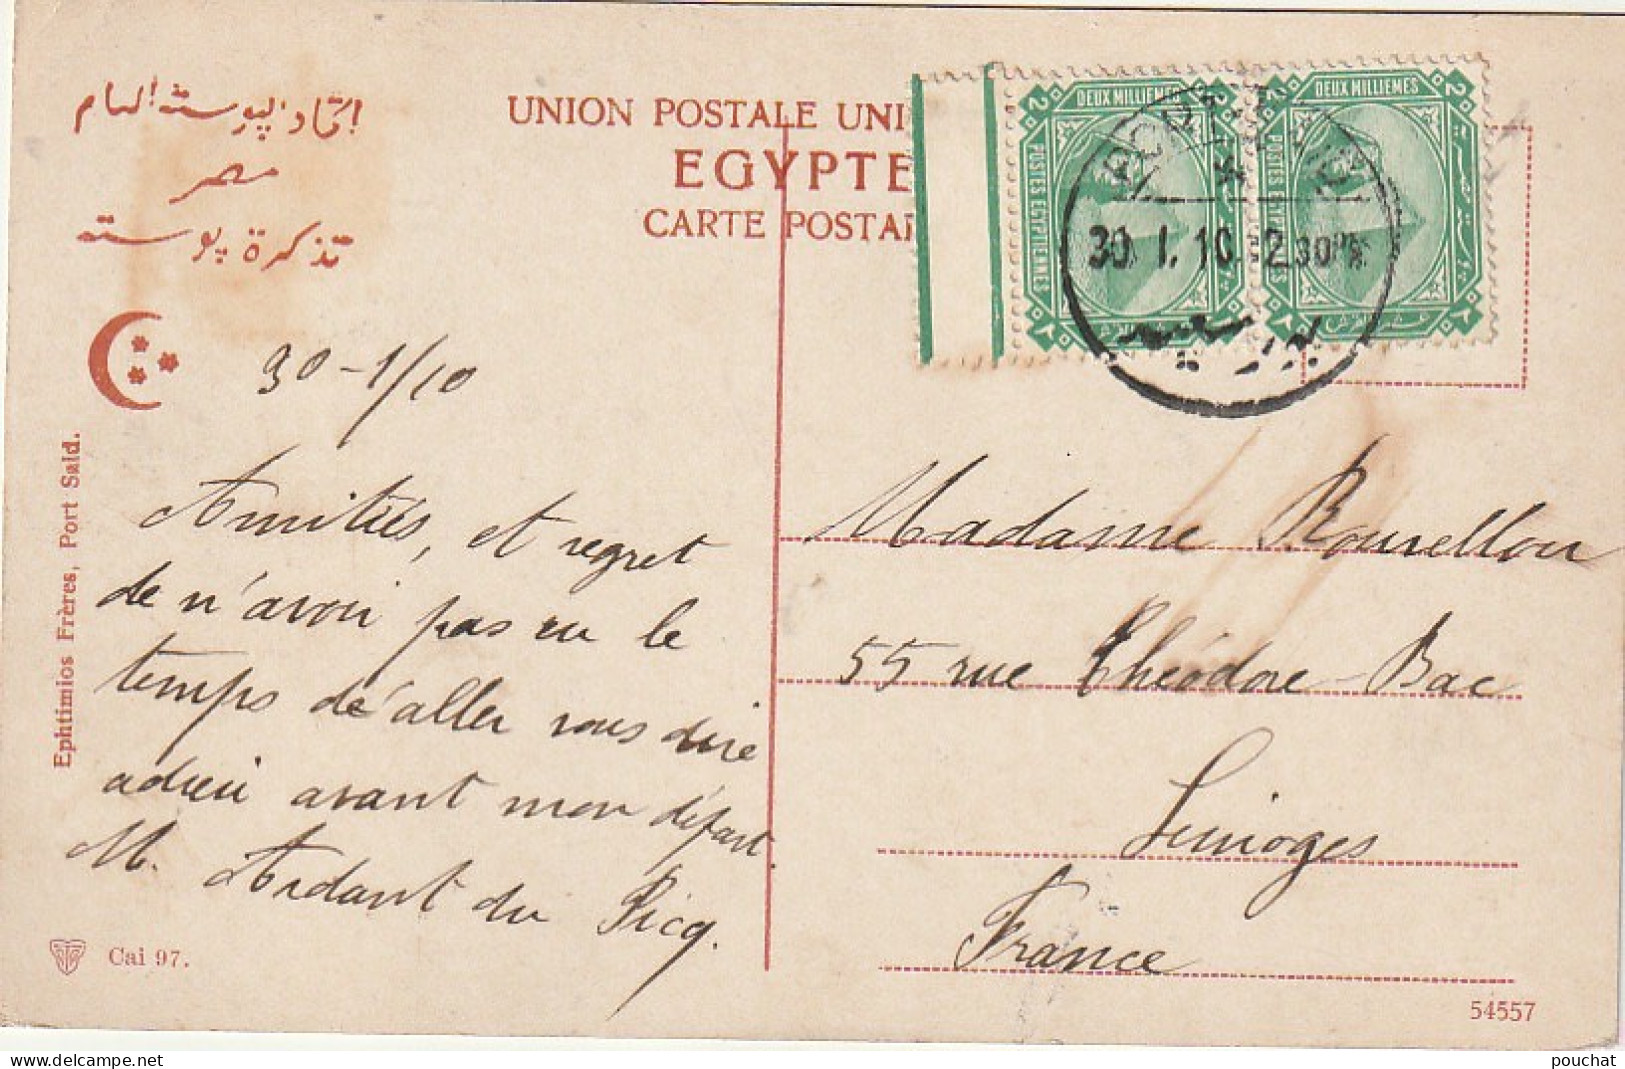 اتحاد البوسته العام
مصر
تذكرة بوسته
UNION POSTALE UNI
EGYPTE
CARTE POSTA
2 DEUX MILLIEMES 2
POSTES EGYPTIENNES
2 DEUX MILLIEMES 2
POSTES EGYPTIENNES
30 . I . 10 . 2 30 PM
30-1/10
Amitiés, et regret
de n'avoir pas eu le
temps de d'aller vous dire
adieu avant mon départ.
M. Ardant du Picq.
Madame Rouvellou
55 rue Théodore-Bac
Limoges
France
Ephtimios Frères, Port Said.
Cai 97.
54557
pouchat